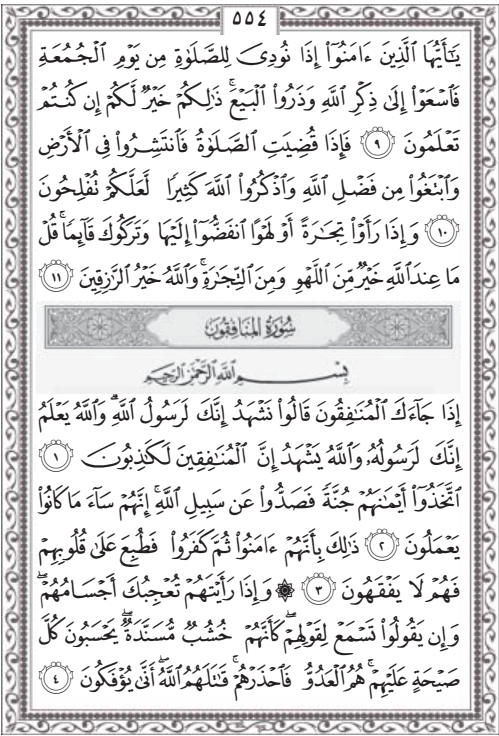 ٥٥٤
يَـٰٓأَيُّهَا ٱلَّذِينَ ءَامَنُوٓاْ إِذَا نُودِىَ لِلصَّلَوٰةِ مِن يَوْمِ ٱلْجُمُعَةِ
فَٱسْعَوْاْ إِلَىٰ ذِكْرِ ٱللَّهِ وَذَرُواْ ٱلْبَيْعَۚ ذَٰلِكُمْ خَيْرٌ لَّكُمْ إِن كُنتُمْ
تَعْلَمُونَ ٩ فَإِذَا قُضِيَتِ ٱلصَّلَوٰةُ فَٱنتَشِرُواْ فِى ٱلْأَرْضِ
وَٱبْتَغُواْ مِن فَضْلِ ٱللَّهِ وَٱذْكُرُواْ ٱللَّهَ كَثِيرًا لَّعَلَّكُمْ تُفْلِحُونَ
١٠ وَإِذَا رَأَوْاْ تِجَـٰرَةً أَوْ لَهْوًا ٱنفَضُّوٓاْ إِلَيْهَا وَتَرَكُوكَ قَآئِمًاۚ قُلْ
مَا عِندَ ٱللَّهِ خَيْرٌ مِّنَ ٱللَّهْوِ وَمِنَ ٱلتِّجَـٰرَةِۚ وَٱللَّهُ خَيْرُ ٱلرَّٰزِقِينَ ١١
سُورَةُ المُنَافِقُونَ
بِسْمِ ٱللَّهِ ٱلرَّحْمَـٰنِ ٱلرَّحِيمِ
إِذَا جَآءَكَ ٱلْمُنَـٰفِقُونَ قَالُواْ نَشْهَدُ إِنَّكَ لَرَسُولُ ٱللَّهِۗ وَٱللَّهُ يَعْلَمُ
إِنَّكَ لَرَسُولُهُۥ وَٱللَّهُ يَشْهَدُ إِنَّ ٱلْمُنَـٰفِقِينَ لَكَـٰذِبُونَ ١
ٱتَّخَذُوٓاْ أَيْمَـٰنَهُمْ جُنَّةً فَصَدُّواْ عَن سَبِيلِ ٱللَّهِۚ إِنَّهُمْ سَآءَ مَا كَانُواْ
يَعْمَلُونَ ٢ ذَٰلِكَ بِأَنَّهُمْ ءَامَنُواْ ثُمَّ كَفَرُواْ فَطُبِعَ عَلَىٰ قُلُوبِهِمْ
فَهُمْ لَا يَفْقَهُونَ ٣ ۞ وَإِذَا رَأَيْتَهُمْ تُعْجِبُكَ أَجْسَامُهُمْۖ
وَإِن يَقُولُواْ تَسْمَعْ لِقَوْلِهِمْۖ كَأَنَّهُمْ خُشُبٌ مُّسَنَّدَةٌۖ يَحْسَبُونَ كُلَّ
صَيْحَةٍ عَلَيْهِمْۚ هُمُ ٱلْعَدُوُّ فَٱحْذَرْهُمْۚ قَـٰتَلَهُمُ ٱللَّهُۖ أَنَّىٰ يُؤْفَكُونَ ٤